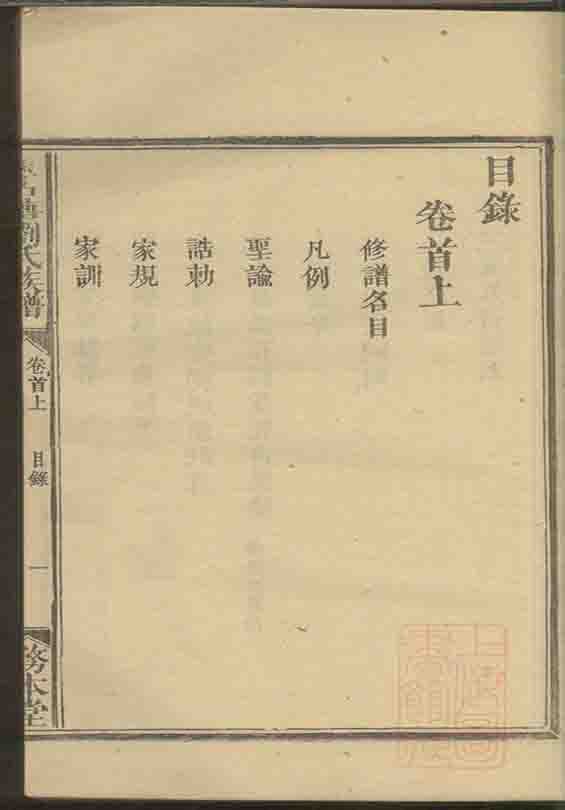 目錄
卷首上
修譜名目
凡例
聖諭
誥勅
家規
家訓
劉氏族譜
卷首上
目錄
一
務本堂